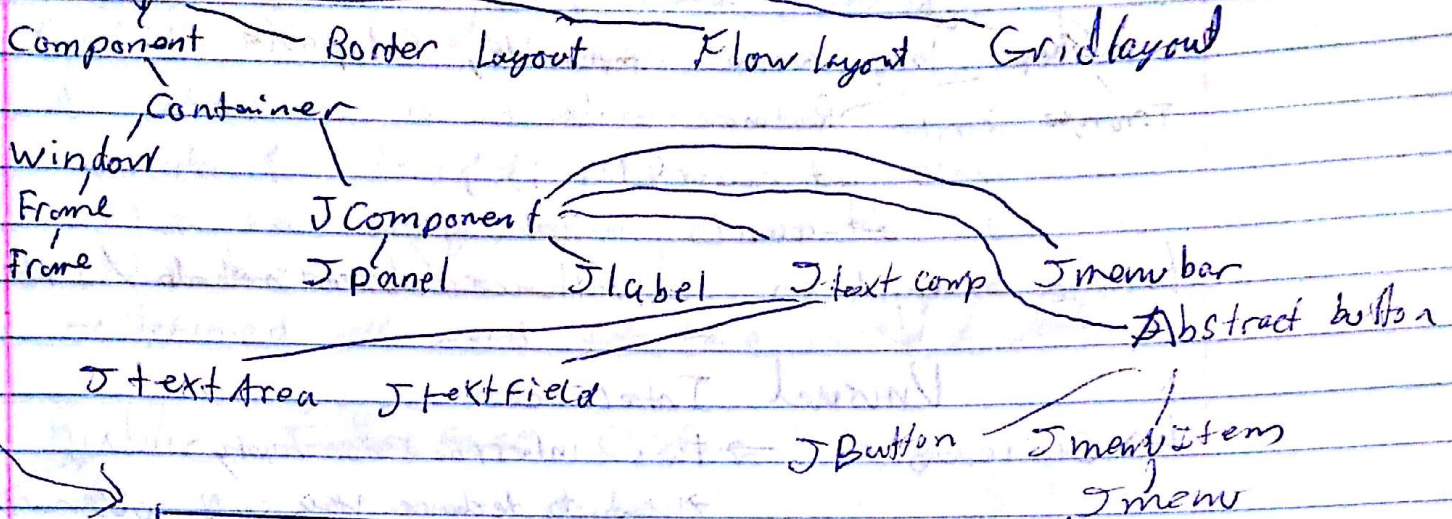 Component Border Layout Flow layout Gridlayout
Container
Window
Frame JComponent
Frame Jpanel Jlabel Jtext comp Jmenubar
Abstract button
JtextArea JtextField
JButton JmenuItem
Jmenu